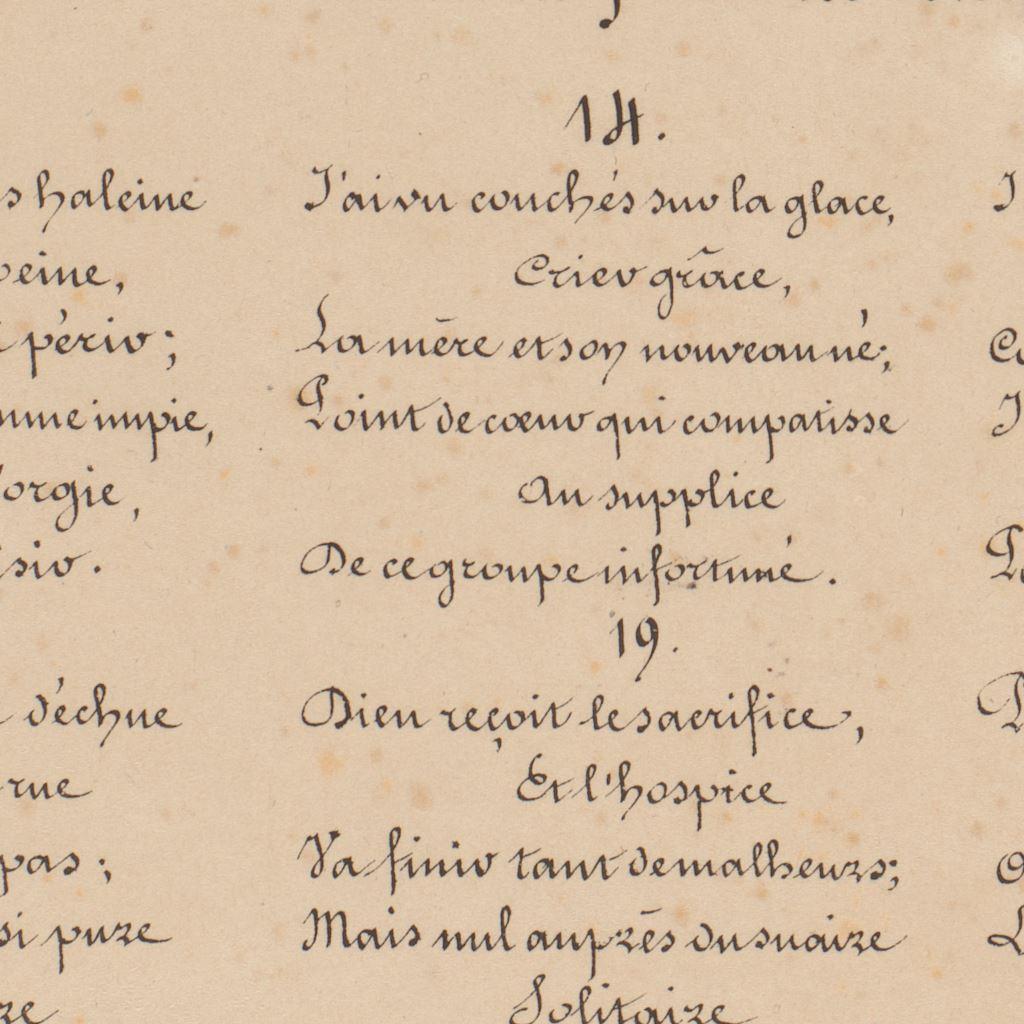 14.
s haleine J'ai vu couchés sur la glace,
Crier grâce,
périr; La mère et son nouveau né;
impie, Point de cœur qui compatisse
orgie, Au supplice
De ce groupe infortuné.
19.
déchue Dieu reçoit le sacrifice,
rue Et l'hospice
pas; Va finir tant de malheurs;
si pure Mais nul auprès du suaire
Solitaire